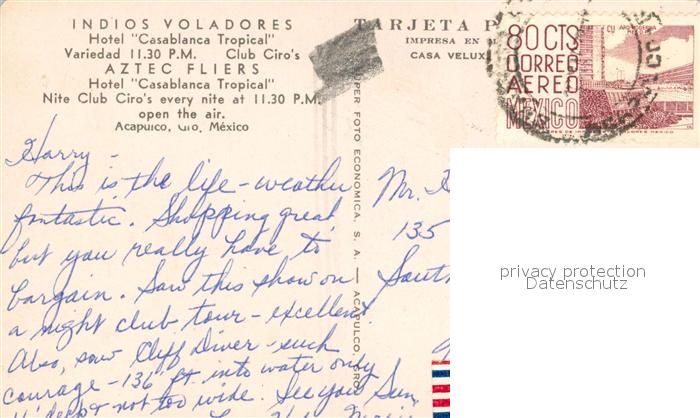 INDIOS VOLADORES
Hotel "Casablanca Tropical"
Variedad 11.30 P.M. Club Ciro's
AZTEC FLIERS
Hotel "Casablanca Tropical"
Nite Club Ciro's every nite at 11.30 P.M.
open the air.
Acapulco, Gro, México
TARJETA P
IMPRESA EN
CASA VELUX
SUPER FOTO ECONOMICA, S. A. — ACAPULCO, GRO.
80 CTS
CORREO
AEREO
MEXICO
Harry -
This is the life - weather
fantastic. Shopping great,
but you really have to
bargain. Saw this show on
a night club tour - excellent.
Also, saw Cliff Diver - such
courage - 136 ft. into water only
11' deep & not too wide. See you Sun.
Mr.
135
South
privacy protection
Datenschutz